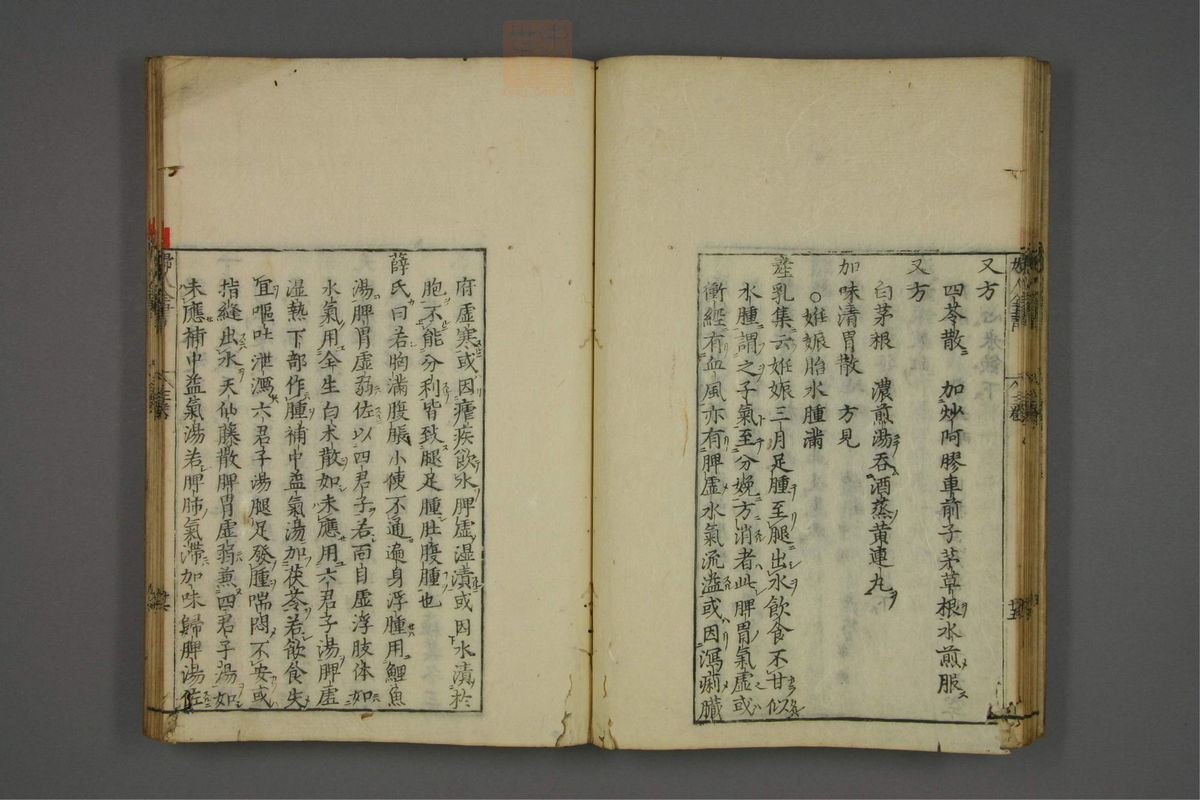 又方
四苓散 加炒阿膠車前子茅草根水煎服
又方
白茅根 濃煎湯吞酒蒸黃連丸
加味清胃散 方見
○姙娠胎水腫滿
產乳集云姙娠三月足腫至腿出水飲食不甘似
水腫謂之子氣至分娩方消者此脾胃氣虛或
衝經有血風亦有脾虛水氣流溢或因瀉痢臟
府虛寒或因瘧疾飲水脾虛湿漬或因水漬於
胞不能分利皆致腿足腫肚腹腫也
薛氏曰若胸滿腹脹小便不通遍身浮腫用鯉魚
湯脾胃虛弱佐以四君子若面目虛浮肢体如
水氣用全生白术散如未應用六君子湯脾虛
湿熱下部作腫補中益氣湯加茯苓若飲食失
宜嘔吐泄瀉六君子湯腿足發腫喘悶不安或
指縫出水天仙藤散脾胃虛弱兼四君子湯如
未應補中益氣湯若脾肺氣滯加味歸脾湯佐